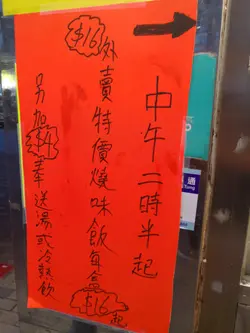 中午二時半起
$16外賣特價燒味飯每盒$16起
另加$4奉送湯或冷熱飲
通